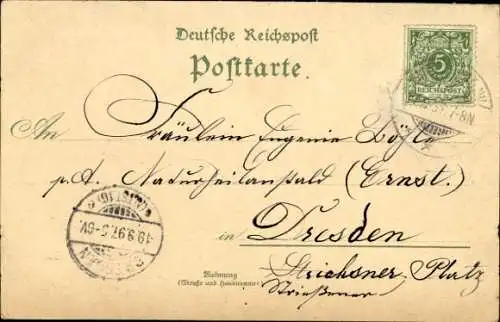 Deutsche Reichspost
Postkarte.
5
REICHSPOST
7-8N
An Fräulein Eugenie
p. A. Naturheilanstald (Ernst.)
19.9.97. 5-6V.
in Dresden
Wohnung
(Straße und Hausnummer)
Striehsner Platz
Strießener